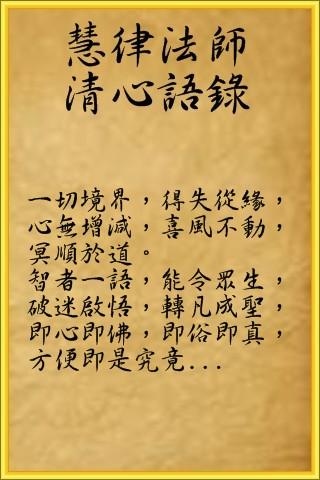 慧律法師
清心語錄
一切境界，得失從緣，
心無增減，喜風不動，
冥順於道。
智者一語，能令眾生，
破迷啟悟，轉凡成聖，
即心即佛，即俗即真，
方便即是究竟...